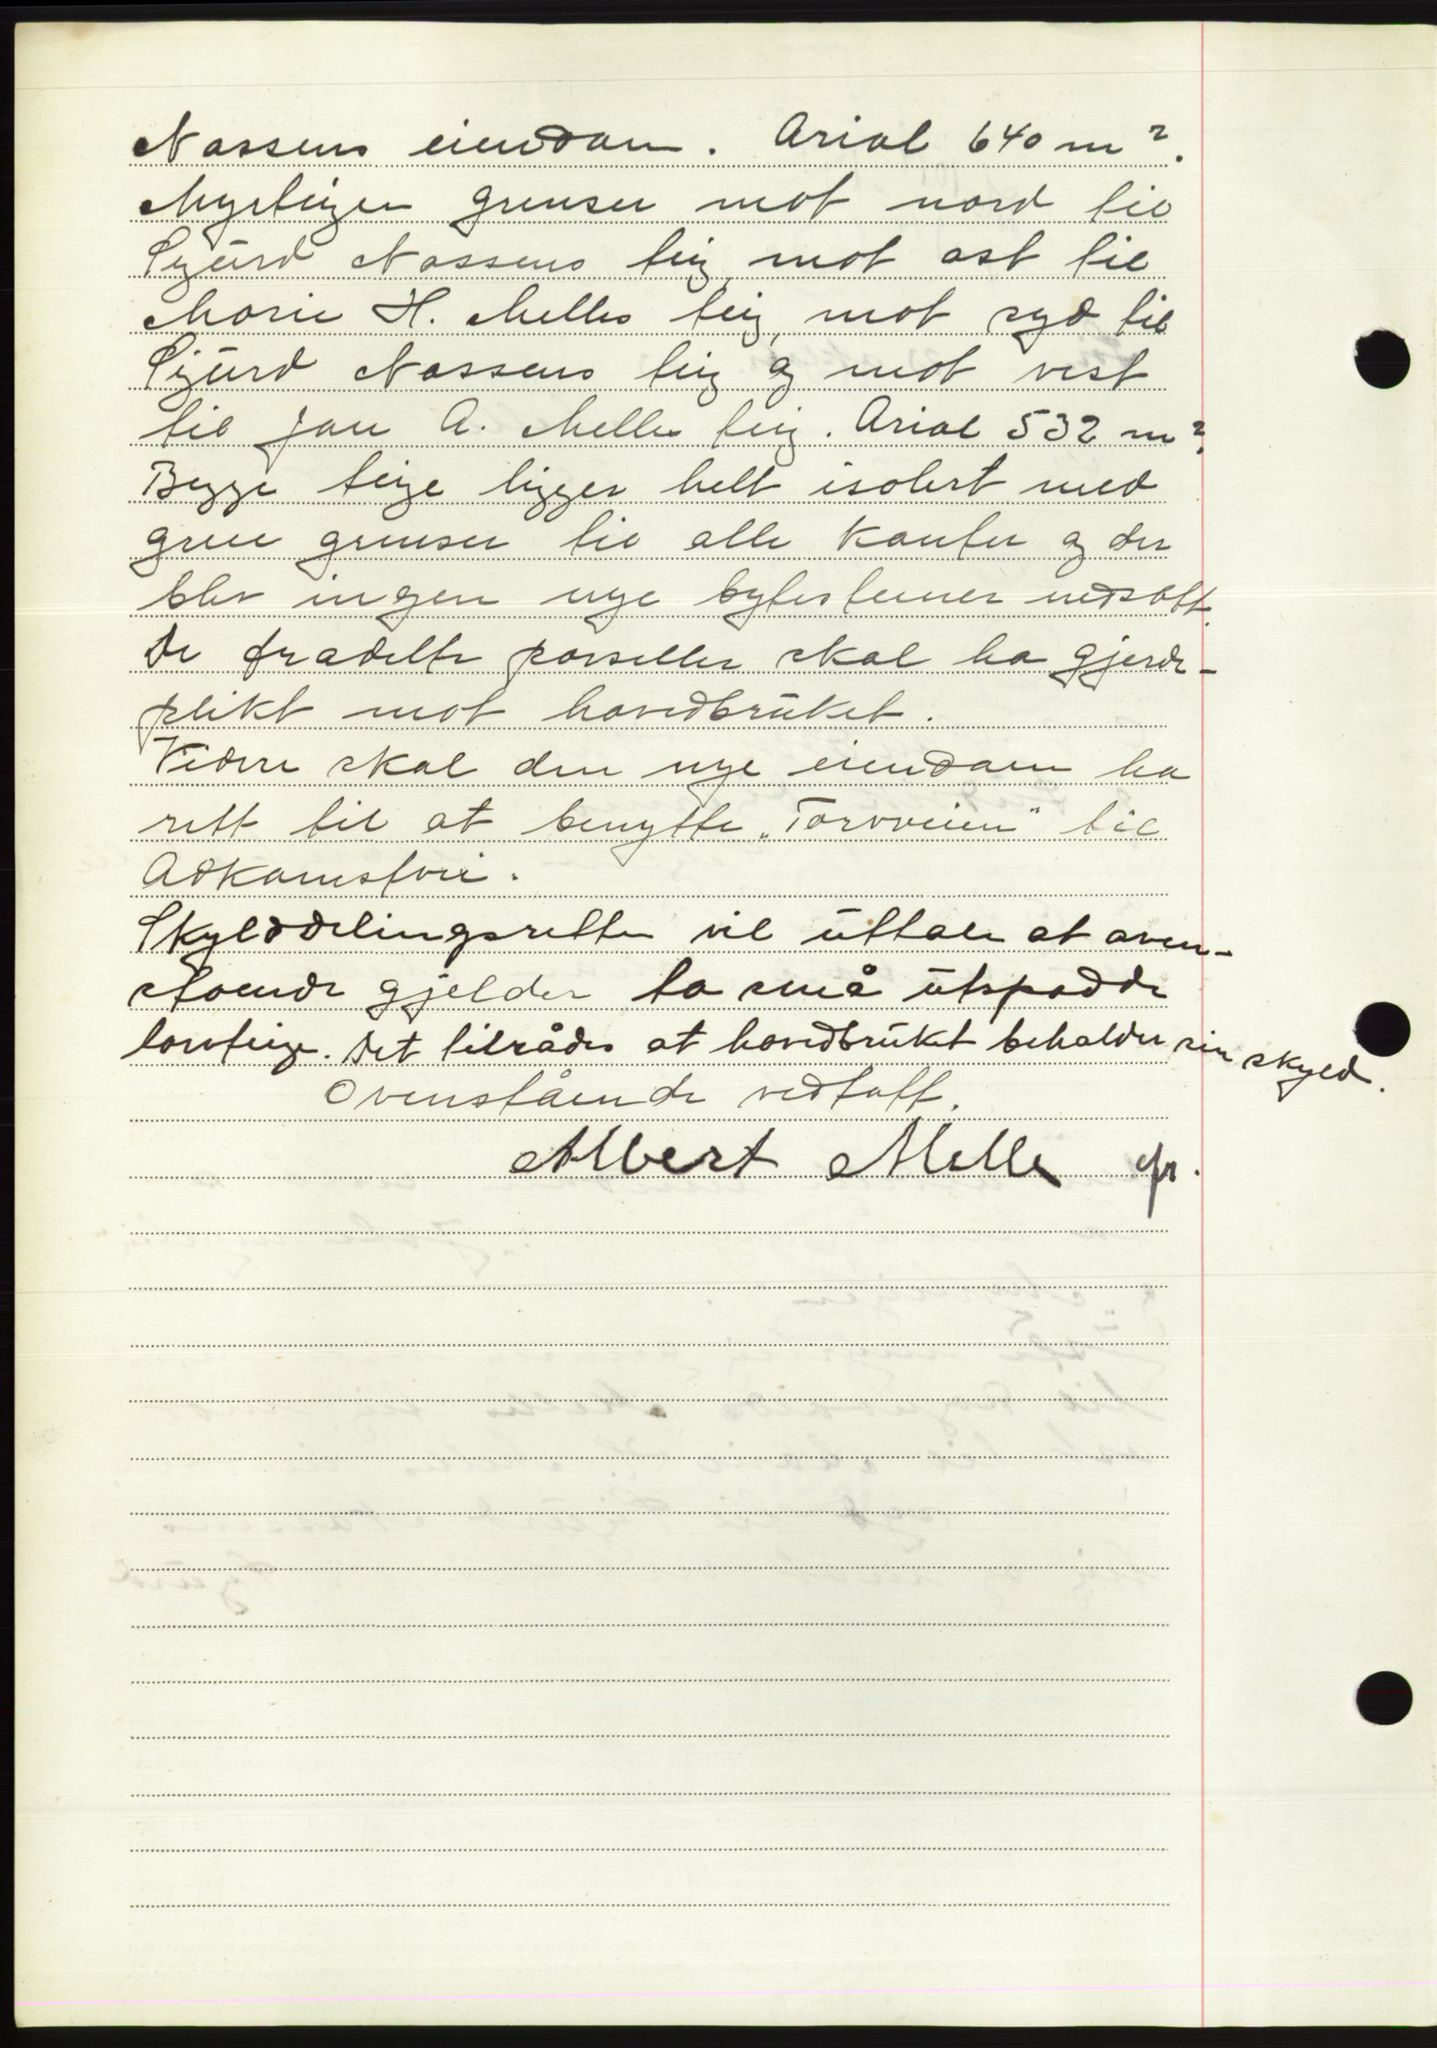 Nassens eiendom. Arial 640 m².
Myrteigen grenser mot nord til
Sjurd Nassens teig, mot øst til
Marie H. Melles teig, mot syd til
Sjurd Nassens teig og mot vest
til Jon A. Melles teig. Arial 532 m².
Begge teige ligger helt isolert med
greie grenser til alle kanter og der
blev ingen nye bytestener nedsatt.
De fradelte parseller skal ha gjerde-
plikt mot hovedbruket.
Videre skal den nye eiendom ha
rett til at benytte "Torvveien" til
Adkomstvei.
Skylddelingsretten vil uttale at oven-
stående gjelder to små utspadde
torvteige. Det tilrådes at hovedbruket beholder sin skyld.
Ovenstående vedtatt.
Albert Melle